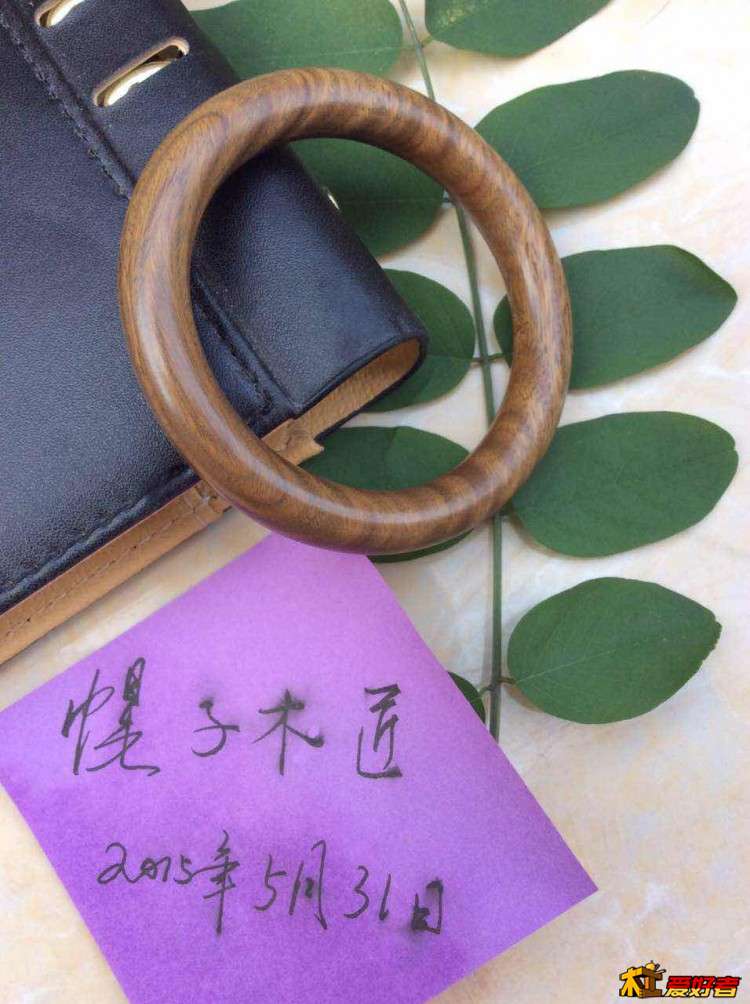 幌子木匠
2015年5月31日
木工爱好者